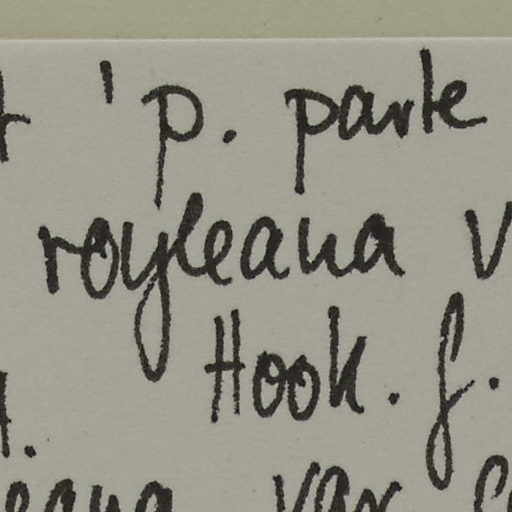 ' p. parte
royleana v
Hook. f.
eana var